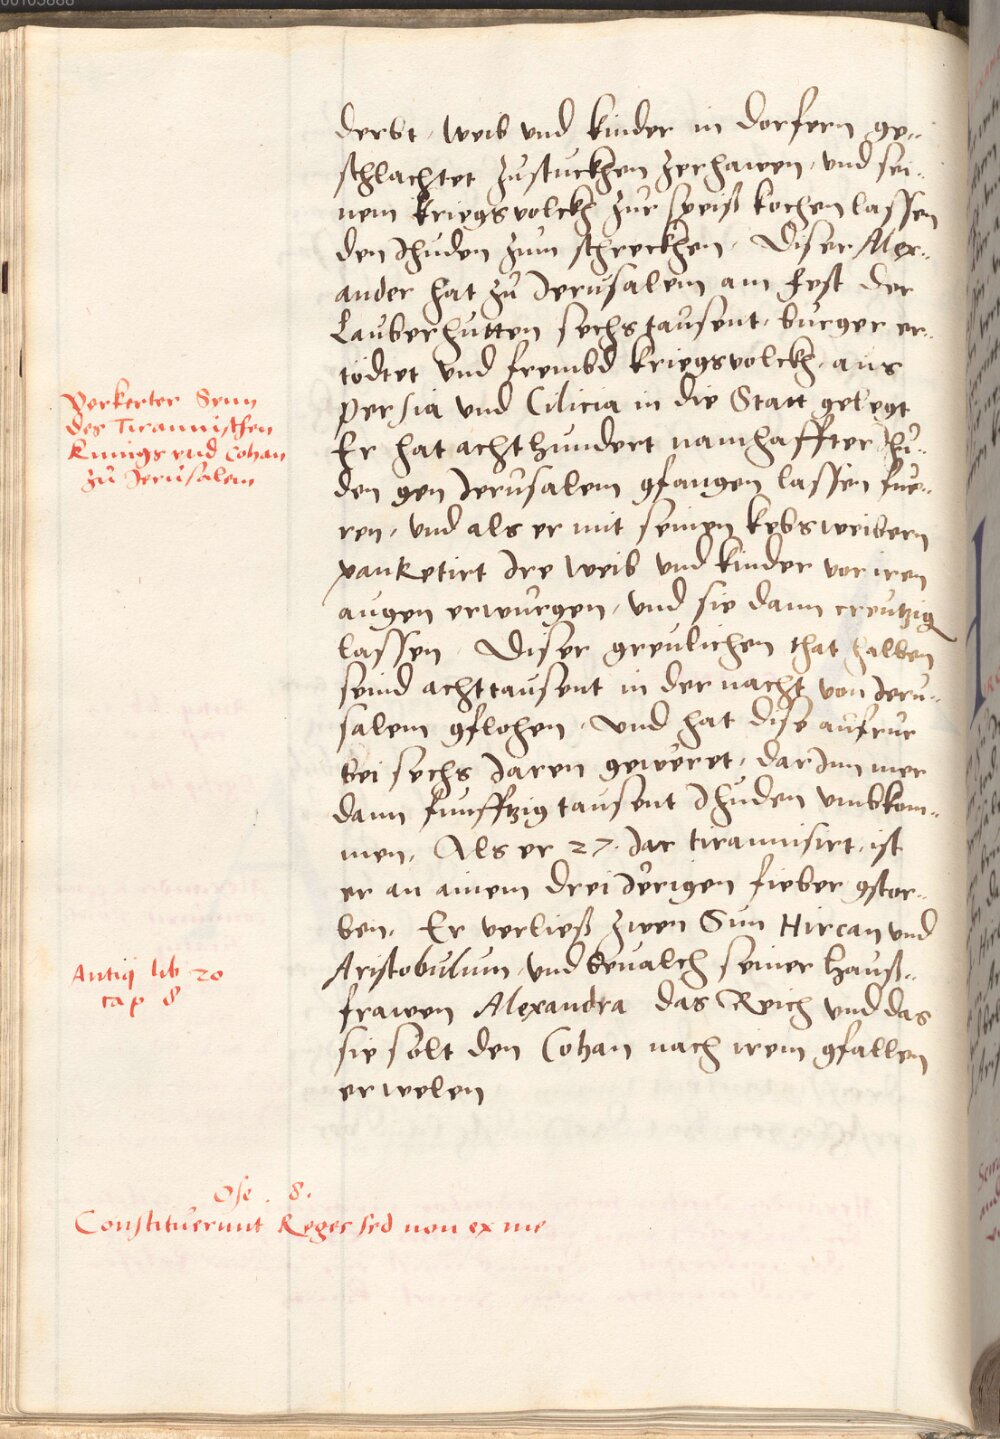 derbt, weib vnd kinder in dorfern ge-
schlachtet zustuckhen zerhawen, vnd sei-
nem kriegsvolckh zur speiß kochen lassen
den Jhuden zum schreckhen. Diser Alex-
ander hat zu Jerusalem am fest der
Lauberhutten sechs tausent, burger er-
tödtet vnd frembd kriegsvolckh, aus
Persia vnd Cilicia in die Statt gelegt
Er hat acht hundert namhaffter Jhu-
den gen Jerusalem gfangen lassen fue-
ren, vnd als er mit seinen kebsweibern
panketirt Ire weib vnd kinder vor iren
augen erwurgen, vnd sie dann creutzig
lassen. Diser greulichen that halben
seind acht tausent in der nacht von Jeru-
salem gflohen. Vnd hat dise aufrur
bei sechs Jaren geweret, darJnn mer
dann funfftzig tausent Jhuden vmbkom-
men. Als er 27. Jar tirannisirt, ist
er an ainem drei Jerigen fieber gstor-
ben. Er verließ zwen Sun Hircan vnd
Aristobulum, vnd beualch seiner hauß-
frawen Alexandra das Reich vnd das
sie solt den Cohan nach irem gfallen
erwelen
Verkerter Senn
des Tirannischen
Kunigs vnd Cohan
zu Jerusalem
Antiq lib 20
cap 8
Ose. 8.
Constituerunt Reges sed non ex me